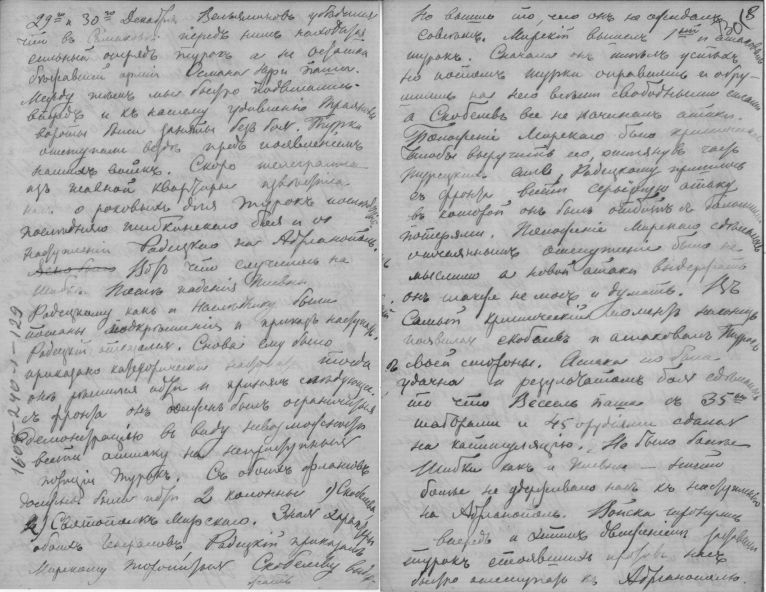 29го и 30го Декабря Вельяминов убедился
что въ передъ нимъ находился
сильный отрядъ турокъ а не остатки
армiи Османа Нури паши.
Между темъ мы быстро подвигались
впередъ и къ нашему удивленiю Траяновы
вороты были заняты безъ боя. Турки
отступали везде предъ появленiемъ
нашихъ войскъ. Скоро телеграмма
изъ главной квартиры известила
насъ о роковыхъ для турокъ
последняго шибкинскаго боя и о
наступленiи Радецкаго на Адрианополь.
Вотъ что случилось на
Шибке. После паденiя Плевны
Радецкому какъ и Наследнику были
посланы подкрепленiя и приказъ наступать.
Радецкiй отказался. Снова ему было
приказано категорически тогда
онъ решился идти и принялъ следующее.
Съ фронта онъ долженъ былъ ограничиться
демонстрацiею въ виду невозможности
вести аттаку на неприступныя
позицiи Турокъ. Съ обоихъ фланговъ
должны были идти 2 колонны 1) Скобелева
2) Святополкъ Мирскаго. Зная характеры
обоихъ Генераловъ Радецкiй приказалъ
Мирскому торопиться Скобелеву
18
Но вышло то, что онъ не ожидалъ
совсемъ. Мирскiй вышелъ 1ымъ и атаковалъ
турокъ. Сначала онъ имелъ успехъ
но потомъ турки оправились и обру-
шились на него всеми свободными силами
а Скобелевъ все не начиналъ атаки.
Положенiе Мирскаго было критическое
чтобы выручить его, оттянувъ часть
Турецкихъ силъ, Радецкому пришлось
съ фронта вести серьезную атаку
въ которой онъ былъ отбитъ съ большими
потерями. Положенiе Мирскаго сделалось
отчаяннымъ отступленiе было не
мыслимо а новой атаки выдержать
онъ также не могъ и думать. Въ
самый критическiй моментъ наконецъ
появился Скобелевъ и атаковалъ Турокъ
съ своей стороны. Атака его была
удачна и результатомъ боя сделалось
то что Весель паша съ 35ю
таборами и 45 орудiями сдался
на капитуляцiю. Но было взятiе
Шибки какъ и Плевна — ничто
больше не удерживало насъ къ наступленiю
на Адрианополь. Войска
впередъ и этимъ движенiемъ заставили
турокъ стоявшихъ противъ насъ
быстро отступать къ Адрианополю.
1608-240-1-129